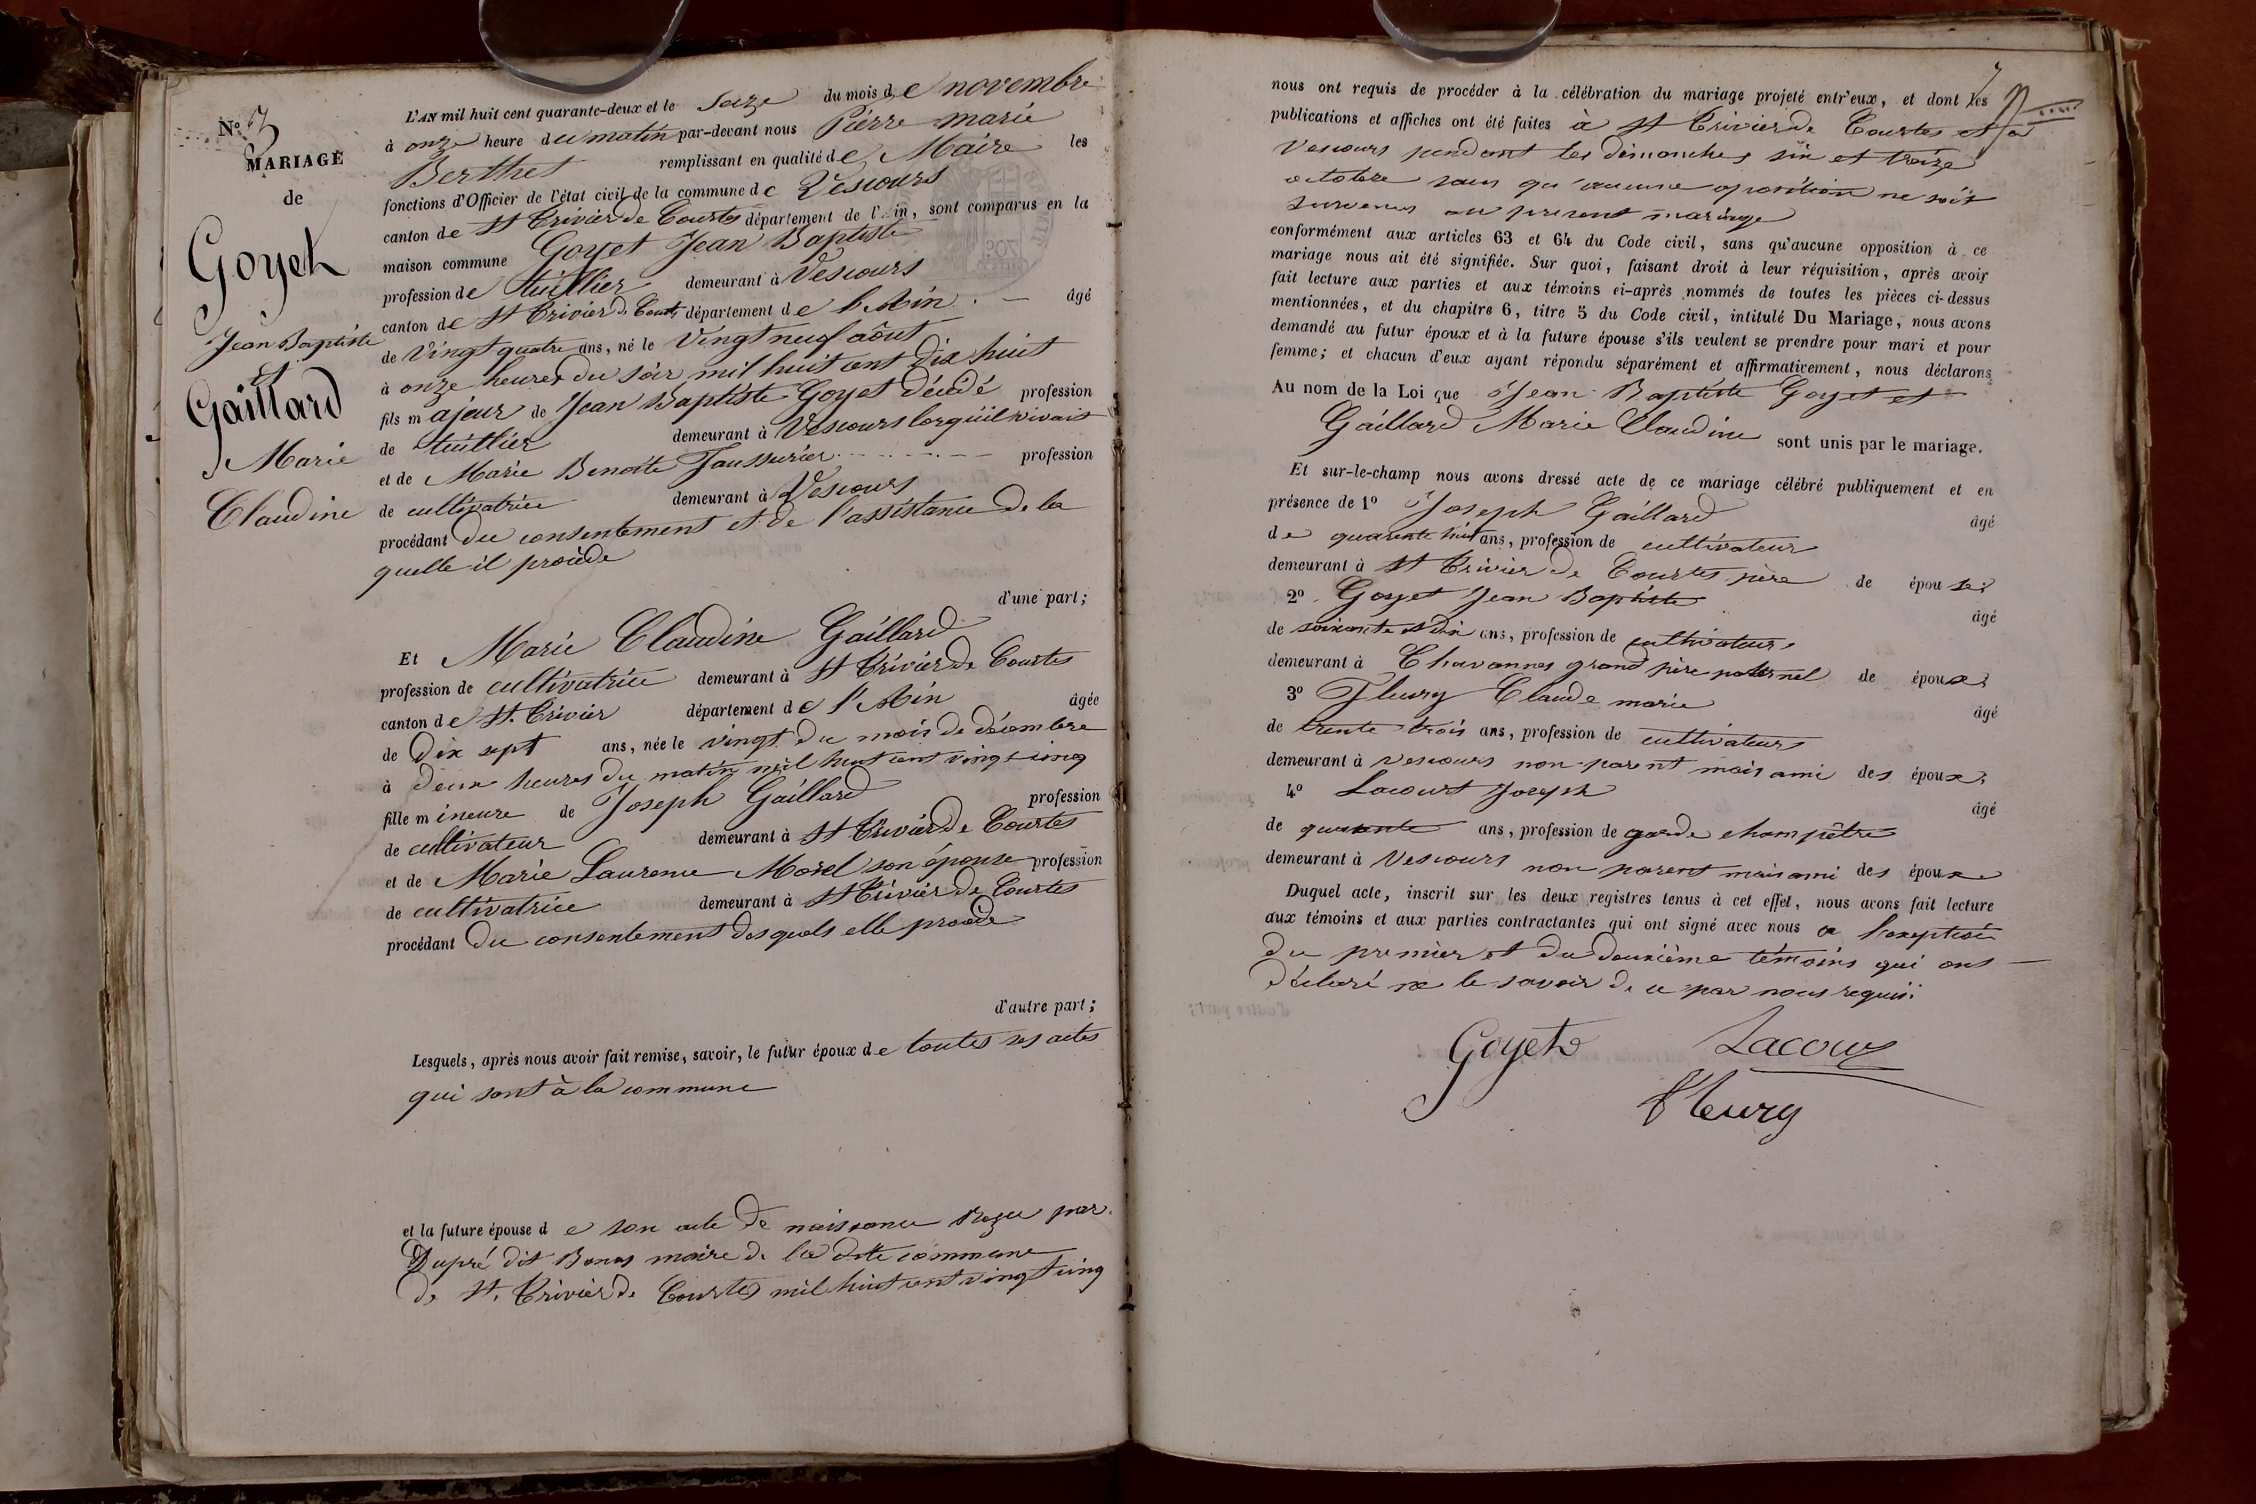 N.º 7
MARIAGE
de
Goyet
Jean Baptiste
et
Gaillard
Marie
Claudine
L'AN mil huit cent quarante-deux et le Seize du mois de novembre
à onze heure du matin par-devant nous Pierre marie
Berthet remplissant en qualité de Maire les
fonctions d'Officier de l'état civil de la commune de Vescours
canton de St Trivier de Courtes département de l'Ain, sont comparus en la
maison commune Goyet Jean Baptiste
profession de tuillier demeurant à Vescours
canton de St Trivier de Courtes département de l'Ain. — âgé
de Vingt quatre ans, né le Vingt neuf août
à onze heures du soir mil huit cent dix huit
fils majeur de Jean Baptiste Goyet décédé profession
de tuillier demeurant à Vescours lorqu'il vivait
et de Marie Benoite profession
de cultivatrice demeurant à Vescours
procédant du consentement et de l'assistance de la
quelle il procède
d'une part;
Et Marie Claudine Gaillard
profession de cultivatrice demeurant à St Trivier de Courtes
canton de St. Trivier département de l'Ain âgée
de Dix sept ans, née le vingt du mois de décembre
à deux heures du matin mil huit cent vingt cinq
fille mineure de Joseph Gaillard profession
de cultivateur demeurant à St Trivier de Courtes
et de Marie Laurence Morel son épouse profession
de cultivatrice demeurant à St Trivier de Courtes
procédant du consentement desquels elle procède
d'autre part;
Lesquels, après nous avoir fait remise, savoir, le futur époux de toutes ses actes
qui sont à la commune
et la future épouse de son acte de naissance reçu par
Dupré dit Bonas maire de la dite commune
de St. Trivier de Courtes mil huit cent vingt cinq
nous ont requis de procéder à la célébration du mariage projeté entr'eux, et dont les
publications et affiches ont été faites à St Trivier de Courtes et à
Vescours pendant les dimanches six et treize
octobre sans qu'aucune oposition ne soit
survenus au present mariage
conformément aux articles 63 et 64 du Code civil, sans qu'aucune opposition à ce
mariage nous ait été signifiée. Sur quoi, faisant droit à leur réquisition, après avoir
fait lecture aux parties et aux témoins ci-après nommés de toutes les pièces ci-dessus
mentionnées, et du chapitre 6, titre 5 du Code civil, intitulé Du Mariage, nous avons
demandé au futur époux et à la future épouse s'ils veulent se prendre pour mari et pour
femme; et chacun d'eux ayant répondu séparément et affirmativement, nous déclarons
Au nom de la Loi que Jean Baptiste Goyet et
Gaillard Marie Claudine sont unis par le mariage.
Et sur-le-champ nous avons dressé acte de ce mariage célébré publiquement et en
présence de 1º Joseph Gaillard âgé
de quarente huit ans, profession de cultivateur
demeurant à St Trivier de Courtes père de épouse;
2º Goyet Jean Baptiste âgé
de soixante et dix ans, profession de cultivateur
demeurant à Chavannes grand père paternel de époux;
3º Fleury Claude marie âgé
de trente trois ans, profession de cultivateur
demeurant à vescours non parent mais ami des époux;
4º Lacourt Joseph âgé
de quarente ans, profession de garde champêtre
demeurant à Vescours non parent mais ami des époux
Duquel acte, inscrit sur les deux registres tenus à cet effet, nous avons fait lecture
aux témoins et aux parties contractantes qui ont signé avec nous a l'exeption
du premier et du deuxième témoins qui ont
déclaré ne le savoir de ce par nous requis.
Goyet Lacour
fleury